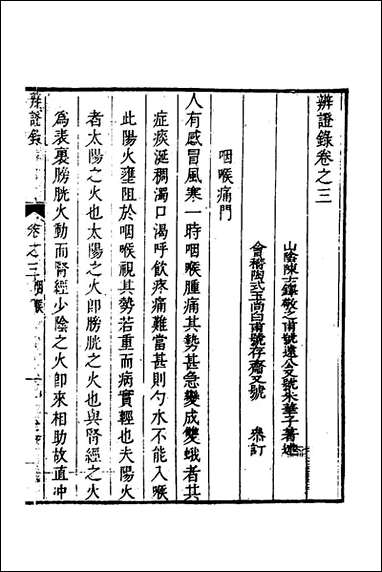 辨證錄卷之三
山陰陳士鐸敬之甫號遠公又號朱華子著述
會稽陶式玉尚白甫號存齋又號　參訂
咽喉痛門
人有感冒風寒一時咽喉腫痛其勢甚急變成雙蛾者其
症痰涎稠濁口渴呼飲疼痛難當甚則勺水不能入喉
此陽火壅阻於咽喉視其勢若重而病實輕也夫陽火
者太陽之火也太陽之火卽膀胱之火也與腎經之火
爲表裏膀胱火動而腎經少陰之火卽來相助故直冲
辨證錄
卷之三 咽喉